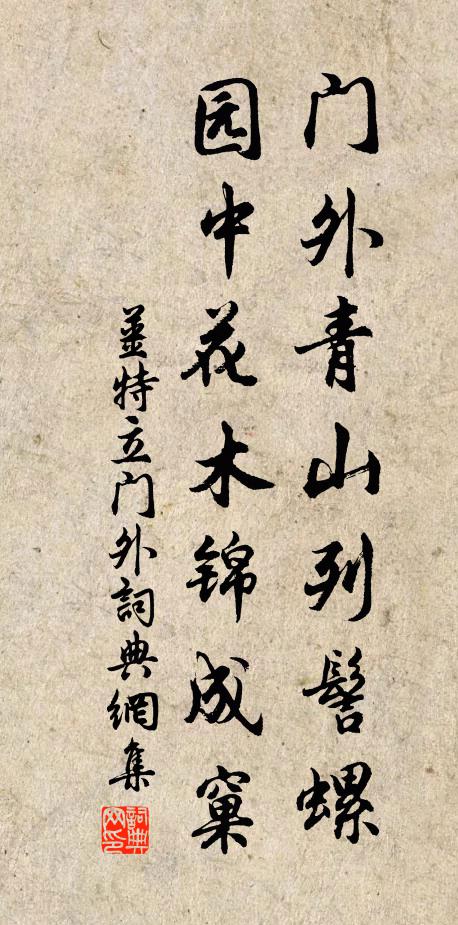 门外青山列髻螺
园中花木锦成窠
姜特立门外詞典網集
詞典网印